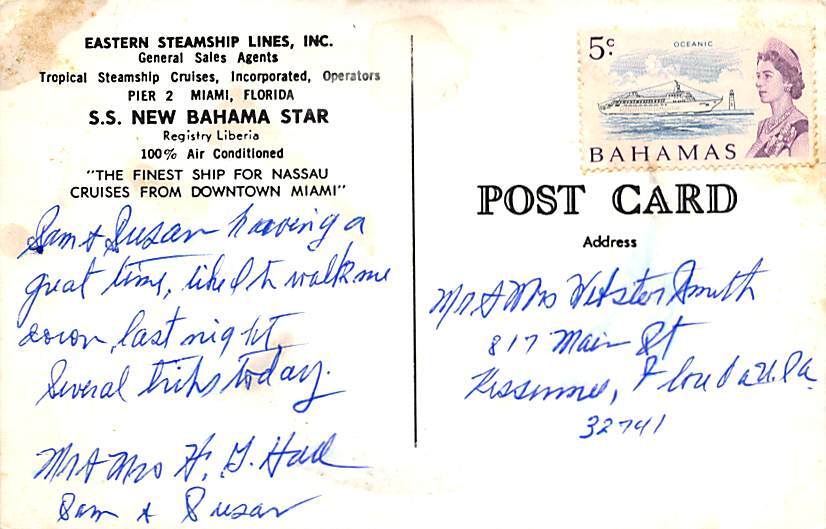 EASTERN STEAMSHIP LINES, INC.
General Sales Agents
Tropical Steamship Cruises, Incorporated, Operators
PIER 2 MIAMI, FLORIDA
S.S. NEW BAHAMA STAR
Registry Liberia
100% Air Conditioned
"THE FINEST SHIP FOR NASSAU
CRUISES FROM DOWNTOWN MIAMI"
Sam & Susan having a
great time, liked to walk me
down, last night,
Several trips today.
Mr & Mrs H. G. Hall
Sam & Susan
5c
OCEANIC
BAHAMAS
POST CARD
Address
Mr & Mrs Webster Smith
817 Main St
Kissimmee, Florida U.S.A.
32741